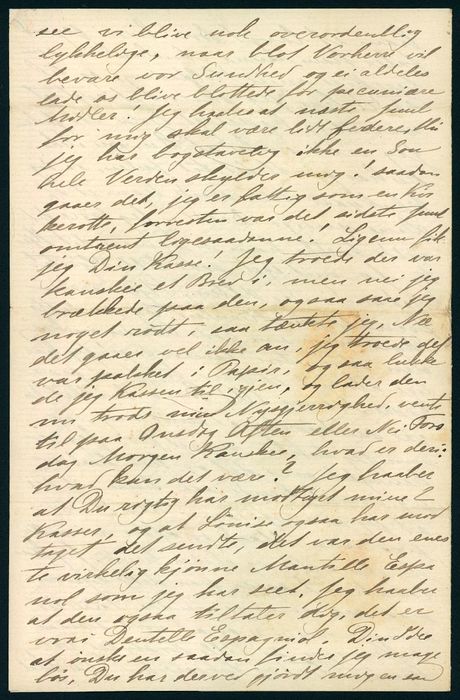 see vi blive nok overordentlig
lykkelige, naar blot Vorherre vil
bevare vor Sundhed og ei aldeles
lade os blive blottede for pecuniære
Midler! Jeg haaber at næste Juul
for mig skal være lidt federe, thi
jeg har bogstavelig ikke en Sou
hele Verden skyldes mig! saadan
gaaer det, jeg er fattig som en Kir
kerotte, forresten var det sidste Juul
omtrent ligesaadanne! Ligenu fik
jeg Din Kasse! Jeg troede der var
kanskee et Brev i, men nei jeg
brækkede paa den, og saa saae jeg
noget rødt, saa tænkte jeg, Nei
det gaaer vel ikke an, jeg troede det
var pakket i Papir, og saa lukke
de jeg Kassen til igjen, og lader den
nu trods min Nysgjerrighed, vente
til paa Onsdag Aften eller Nei Tors
dag Morgen kanskee, hvad er deri?
hvad kan det være? Jeg haaber
at Du rigtig har modtaget mine
Kasser, og at Louise ogsaa har mod
taget det sendte, det var den enes
te virkelig kjønne Mantille Espa
nol som jeg har seet, Jeg haaber
at den ogsaa tiltaler dig, det er
vrai Dentelle Espagnol. Din Idee
at ønske en saadan findes jeg mage
løs, Du har derved gjordt mig en saa